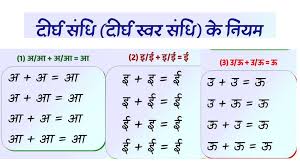 दीर्घ संधि (दीर्घ स्वर संधि) के नियम
(1) अ/आ + अ/आ = आ
अ + अ = आ
अ + आ = आ
आ + अ = आ
आ + आ = आ
(2) इ/ई + इ/ई = ई
इ + इ = ई
इ + ई = ई
ई + इ = ई
ई + ई = ई
(3) उ/ऊ + उ/ऊ = ऊ
उ + उ = ऊ
उ + ऊ = ऊ
ऊ + उ = ऊ
ऊ + ऊ = ऊ